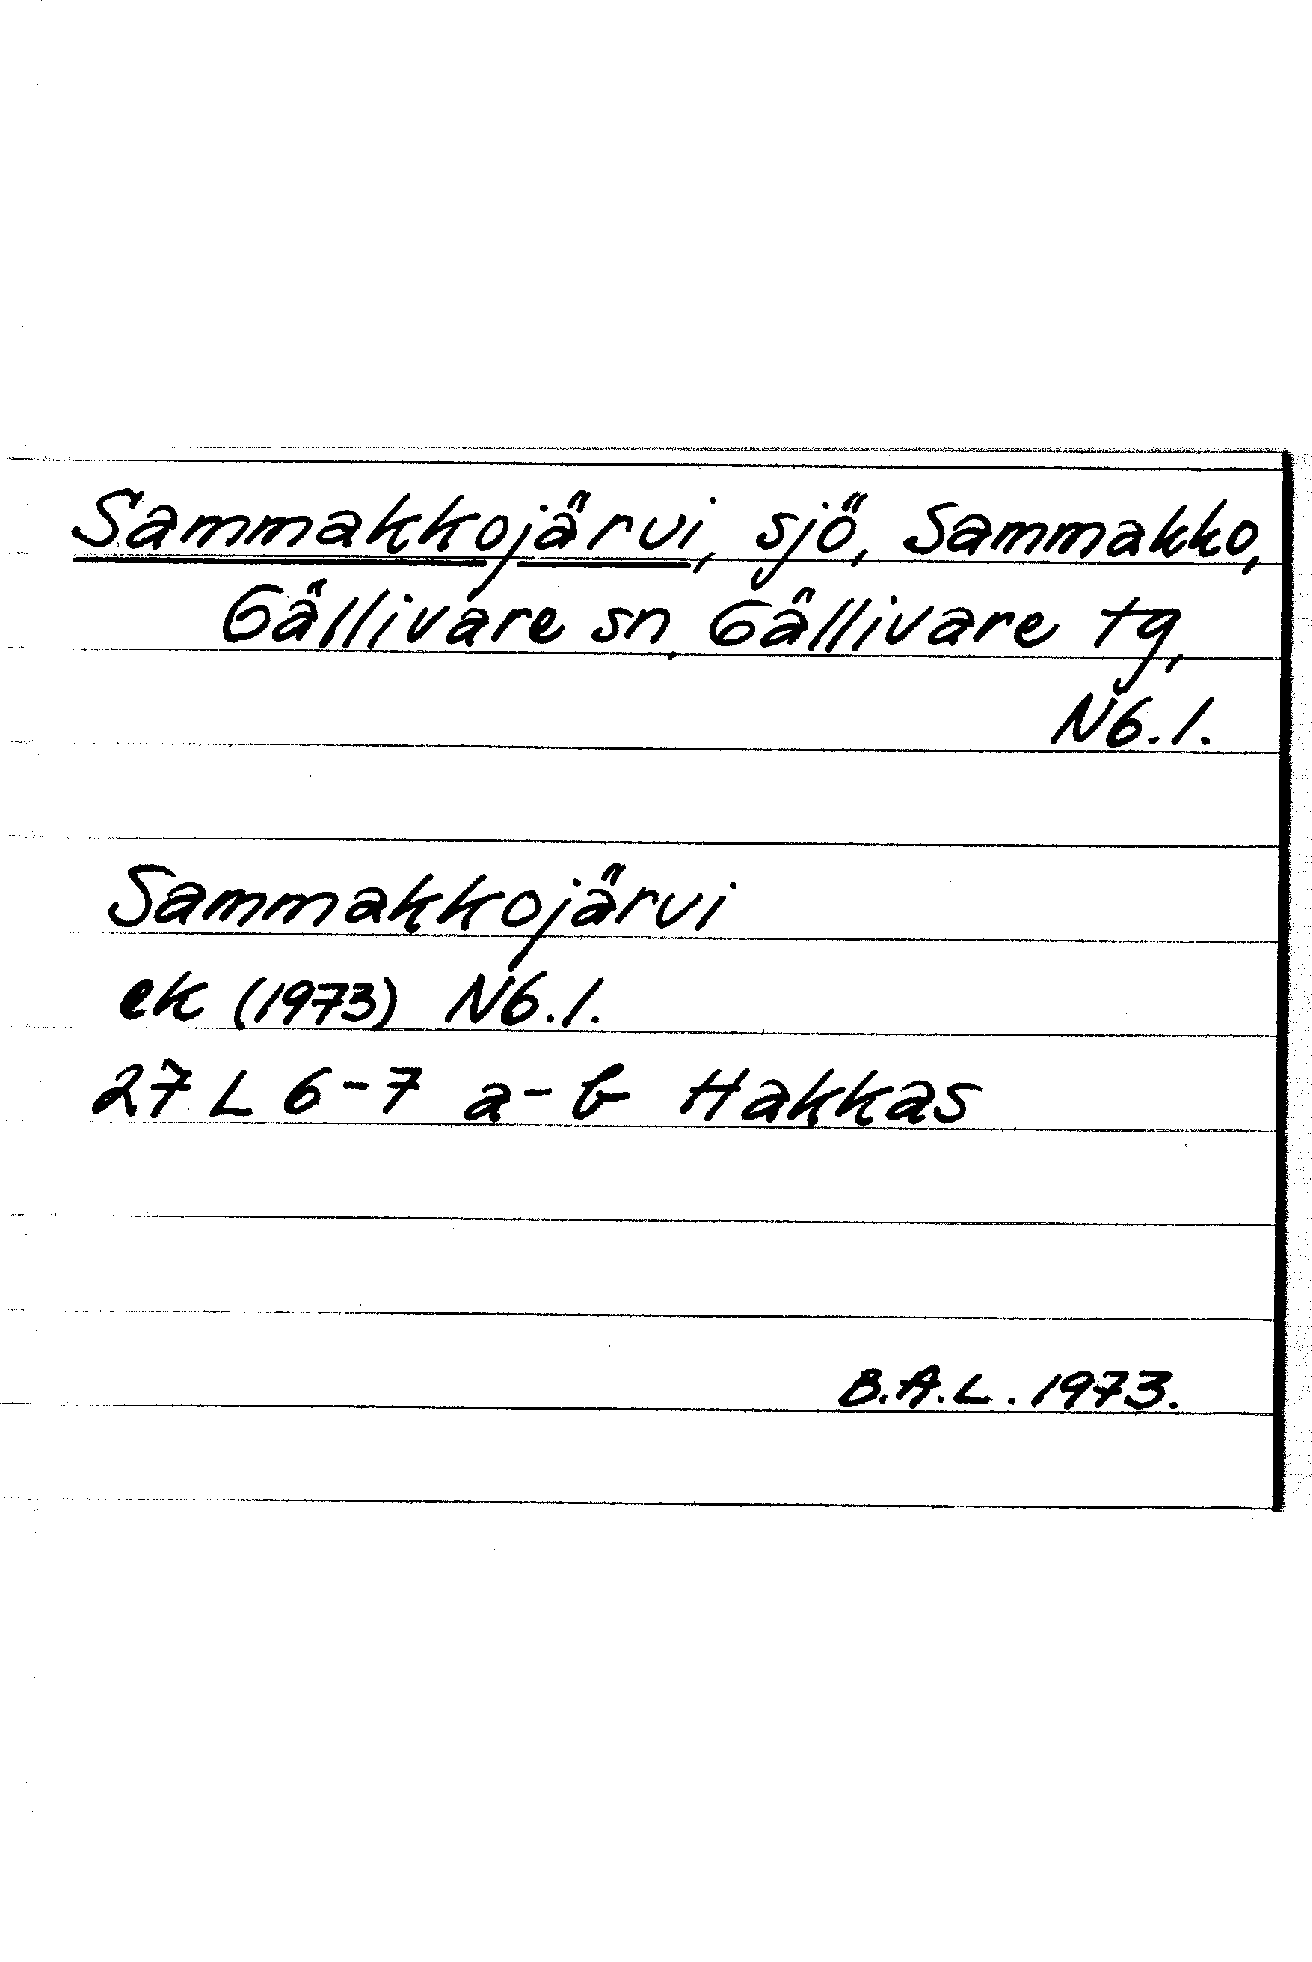 Sammakkojärvi, sjö, Sammakko,
Gällivare sn, Gällivare tg,
N6.1.
Sammakkojärvi
ek (1973) N6.1.
27 L 6-7 a-b Hakkas
B.A.L. 1973.